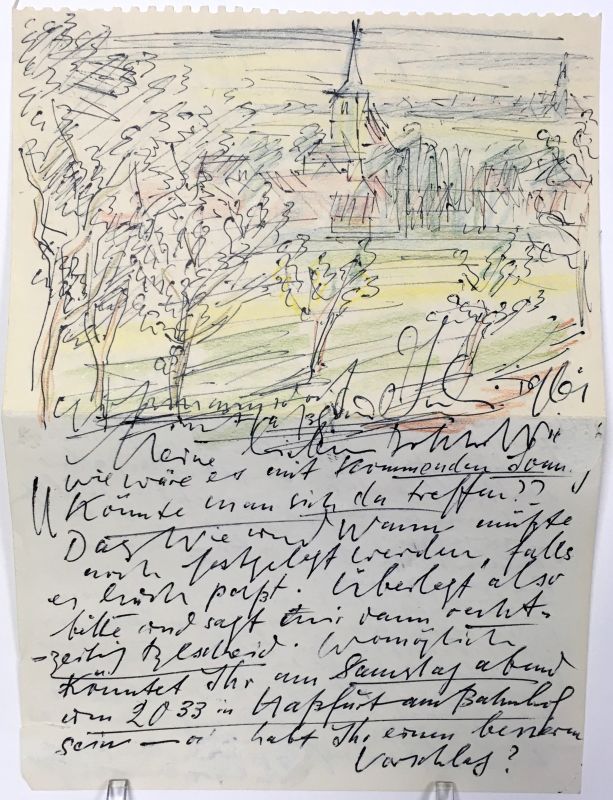 Meine lieben
wie wäre es mit kommenden Sonn
Könnte man sich da treffen??
Das Wie und Wann müßte
noch festgelegt werden, falls
es Euch paßt. Überlegt also
bitte und sagt mir dann recht-
-zeitig Bescheid. Womöglich
könntet Ihr am Samstag abend
um 20 33 in Haßfurt am Bahnhof
sein — habt Ihr einen besseren
Vorschlag?